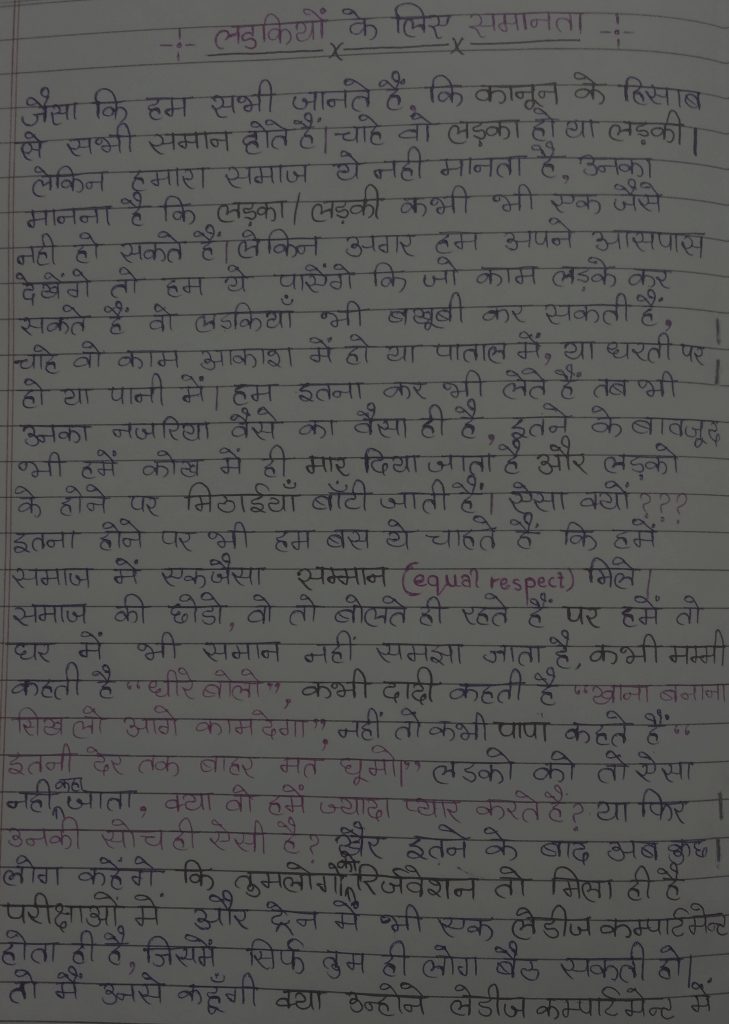 लडकियों के लिए समानता
जैसा कि हम सभी जानते हैं, कि कानून के हिसाब
से सभी समान होते हैं। चाहे वो लड़का हो या लड़की।
लेकिन हमारा समाज ये नही मानता है, उनका
मानना है कि लड़का / लड़की कभी भी एक जैसे
नही हो सकते हैं। लेकिन अगर हम अपने आसपास
देखेंगे तो हम ये पाएंगे कि जो काम लड़के कर
सकते हैं वो लडकियाँ भी बखूबी कर सकती हैं,
चाहे वो काम आकाश में हो या पाताल में, या धरती पर
हो या पानी में। हम इतना कर भी लेते हैं तब भी
उनका नजरिया वैसे का वैसा ही है, इतने के बावजूद
भी हमें कोख में ही मार दिया जाता है और लड़को
के होने पर मिठाईयाँ बाँटी जाती हैं। ऐसा क्यों???
इतना होने पर भी हम बस ये चाहते हैं कि हमें
समाज में एकजैसा सम्मान (equal respect) मिले।
समाज की छोडो, वो तो बोलते ही रहते हैं पर हमें तो
घर में भी समान नहीं समझा जाता है, कभी मम्मी
कहती है "धीरे बोलो", कभी दादी कहती है "खाना बनाना
सिख लो आगे काम देगा", नहीं तो कभी पापा कहते हैं "
इतनी देर तक बाहर मत घूमो।" लडको को तो ऐसा
नही कहा जाता, क्या वो हमें ज्यादा प्यार करते हैं? या फिर
उनकी सोच ही ऐसी है? खैर इतने के बाद अब कुछ
लोग कहेंगे कि तुमलोगों को रिर्जवेशन तो मिला ही है
परीक्षाओं में और ट्रेन में भी एक लेडीज कम्पार्टमेन्ट
होता ही है, जिसमें सिर्फ तुम ही लोग बैठ सकती हो।
तो मैं उनसे कहूँगी क्या उन्होने लेडीज कम्पार्टमेन्ट में